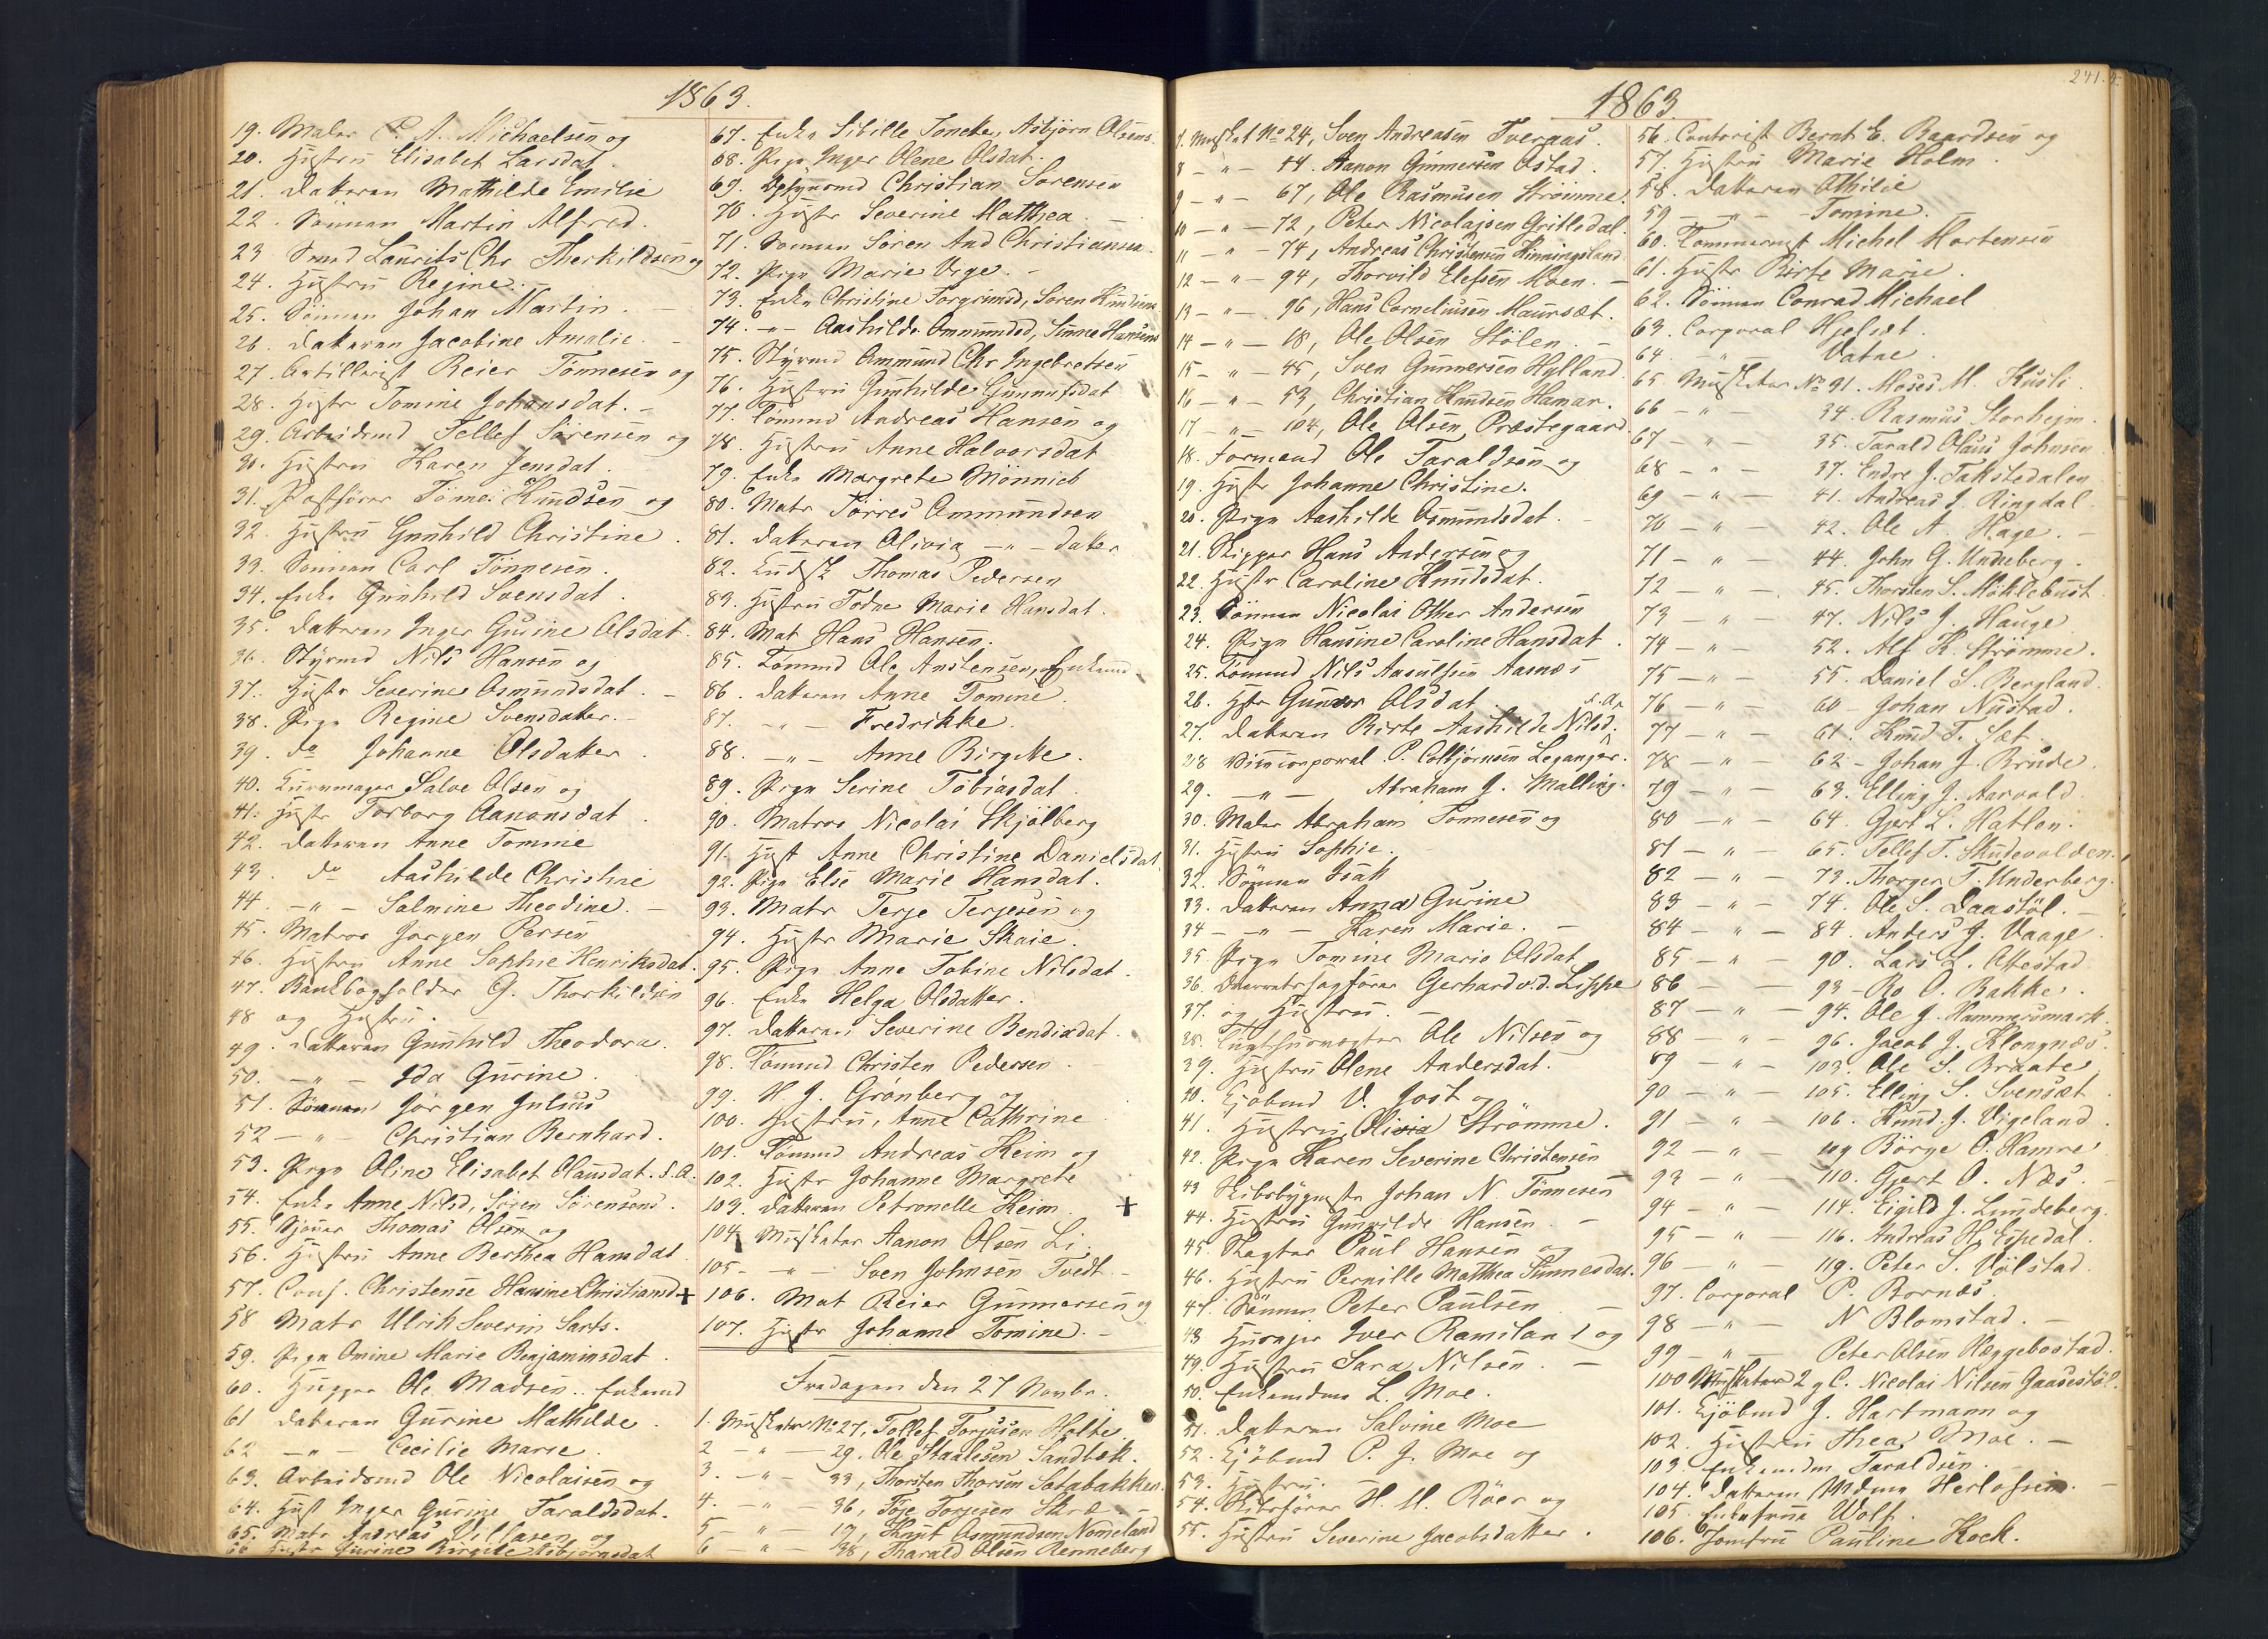 1863.
19. Maler P. A. Michaelsen og
20. Hustru Elisabet Larsdat.
21. Datteren Mathilde Emilie
22. Sönnen Martin Alfred.
23 Smed Laurits Chr Therkildsen og
24. Hustru Regine.
25. Sönnen Johan Martin.
26. Datteren Jacobine Amalie.
27. Artillerist Reier Tönnesen og
28. Hustr Tomine Johansdat.
29. Arbeidsmd Tellef Sörensen og
30. Hustru Karen Jensdat.
31. Postförer Tönnes Knudsen og
32. Hustru Gunhild Christine.
33. Sönnen Carl Tönnesen.
34. Enke Gunhild Svensdat.
35. Datteren Inger Gurine Olsdat.
36. Styrmd Nils Hansen og
37. Hustr Severine Osmundsdat.
38. Pige Regine Svensdatter.
39. do Johanne Olsdatter
40. Salve Olsen og
41. Hustr Torborg Aanonsdat.
42. Datteren Anne Tomine
43. do Aashilde Christine
44. -"- Salmine Theodine.
45. Matros Jörgen Persen
46. Hustru Anne Sophie Henriksdat.
47. Bankbogholder G. Thorkildsen
48 og Hustru.
49. Datteren Gunhild Theodora.
50. -"- Ida Gurine.
51. Sönnen Jörgen Julius
52 -"- Christian Bernhard.
53. Pige Oline Elisabet Olausdat. S.A.
54. Enke Anne Nilsd, Sören Sörensens.
55. Thomas Olsen og
56. Hustru Anne Berthea Hansdat
57. Conf. Christense Hansine Christiansd +
58 Matr Ulrik Severin Sarts.
59. Pige Omine Marie Benjaminsdat.
60. Ole Madsen. Enkemd
61 Datteren Gurine Mathilde.
62 -"- Cecilie Marie.
63. Arbeidsmd Ole Nicolaisen og
64. Hust Inger Gurine Taraldsdat.
65. Matr Andreas Villasen og
66 Hustr Gurine Birgite Asbjörnsdat
67. Enke Sibille Toneke, Asbjörn Olsens
68. Pige Inger Olene Olsdat.
69. Opsynsmd Christian Sörensen
70. Hustr Severine Matthea.
71. Sönnen Sören And Christiansen
72. Pige Marie Vige.
73. Enke Christine Torgrimsd, Sören Knudsens
74. -"- Aashilde Ommundsd, Hansens
75. Styrmd Ommund Chr Ingebretsen
76. Hustru Gunhilde Gunnufsdat
77. Tömmd Andreas Hansen og
78. Hustru Anne Halvorsdat
79. Enke Margrete Mönnich
80. Matr Törres Ommundsen
81. Datteren Olivia -"- datter
82. Thomas Pedersen
83. Hustru Todne Marie Hansdat.
84. Mat Hans Hansen.
85. Tömmd Ole Anstensen, Enkemd.
86. Datteren Anne Tomine.
87. -"- Fredrikke.
88. -"- Anne Birgitte.
89. Pige Serine Tobiasdat.
90. Matros Nicolai Skjölberg
91. Hust Anne Christine Danielsdat
92. Pige Else Marie Hansdat.
93. Matr Terje Terjesen og
94. Hustr Marie Skaie.
95. Pige Anne Tobine Nilsdat.
96. Enke Helga Olsdatter.
97. Datteren Severine Bendixdat.
98. Tömmd Christen Pedersen
99. H. J. Grönberg og
100. Hustru, Anne Cathrine
101. Tömmd Andreas Heim og
102. Hustr Johanne Margrete
103. Datteren Petronelle Heim. +
104. Musketer Aanon Olsen Li.
105 -"- Sven Johnsen Tvedt.
106. Mat Reier Gunnersen og
107. Hustr Johanne Tomine.
Fredagen den 27 Novbr.
1. Musketer No 27, Tollef Torjusen Holte.
2 -"- 29. Ole Staalesen Sandbek.
3. -"- 33, Thorsten Thorsen Satabakken.
4. -"- 36, Töje Torjesen
5 -"- 19, Knut Osmundsen Nomeland
6 -"- 38, Tharald Olsen Renneberg
1863.
241.
7. Musket No 24, Sven Andreasen Tveraas.
8 -"- 44. Aanon Gunnersen Ostad.
9 -"- 67, Ole Rasmusen Strömme.
10 -"- 72, Peter Nicolajsen Grilledal.
11 -"- 74, Andreas Christensen Hinningsland
12 -"- 94, Thorvild Elefsen Moen.
13 -"- 96, Hans Corneliusen Maursæt.
14 -"- 18, Ole Olsen Stölen.
15 -"- 45, Sven Gunnersen Hylland
16 -"- 53, Christian Knudsen Hamar.
17 -"- 104, Ole Olsen Præstegaard.
18. Formand Ole Taraldsen og
19. Hustr Johanne Christine.
20. Pige Aashilde Osmundsdat.
21. Skipper Hans Andersen og
22. Hustr Caroline Knudsdat.
23. Sönnen Nicolai Other Andersen
24. Pige Hansine Caroline Hansdat.
25. Tömmd Nils Aasulfsen Aasnæs
26. Hstr Gunvor Olsdat.
27. Datteren Birte Aashilde Nilsd. S.A.
28 Vicecorporal P. Colbjörnsen Leganger.
29. -"- Abraham J. Malling.
30. Maler Abraham Tönnesen og
31. Hustru Sophie.
32. Sönnen Isak
33. Datteren Anna Gurine
34 -"- Karen Marie.
35. Pige Tomine Marie Olsdat
36. Overretssagförer Gerhard v. d. Lippe
37. og Hustru.
38. Ole Nilsen og
39. Hustru Olene Andersdat.
40. Kjöbmd V. Jost og
41. Hustru Olivia Strömme.
42. Pige Karen Severine Christensen
43 Skibsbygmstr Johan N. Tönnesen
44. Hustru Gunvilde Hansen.
45. Slagter Paul Hansen og
46. Hustru Pernille Matthea Sunnesdat.
47. Sönnen Peter Paulsen
48 Iver Ramslan 1 og
49. Hustru Sara Nilsen.
50. Enkemdme L. Moe.
51. Datteren Salvine Moe
52. Kjöbmd P. J. Moe og
53. Hustru.
54. Skibsförer H. M. Röer og
55. Hustru Severine Jacobsdatter.
56. Contorist Bernt E. Baardsen og
57. Hustru Marie Holm.
58. Datteren Othilie
59 -"- Tomine.
60. Tömmermst Michel Mortensen
61. Hustr Birte Marie.
62. Sönnen Conrad Michael
63. Corporal Hjelset.
64. -"- Vatne.
65. Musketer No 91. Moses M. Kusli
66 -"- 34. Rasmus Storhejm.
67 -"- 35. Tarald Olaus Johnsen
68 -"- 37. Endre J. Takstedalen
69 -"- 41. Andreas J. Ringdal
70 -"- 42. Ole A. Hage.
71 -"- 44. John G. Undeberg.
72 -"- 45. Thorsten S. Möklebust.
73 -"- 47. Nils J. Hauge
74 -"- 52. Alf K. Strömme.
75 -"- 55. Daniel S. Bergland.
76 -"- 60 - Johan Nustad.
77 -"- 61. Knud T. Sæt
78 -"- 62 - Johan J. Brude.
79 -"- 63. Elling J. Aarvold
80 -"- 64. Gjert L. Hatlen.
81 -"- 65. Tellef T. Skudevolden.
82 -"- 73. Thorger T. Underberg.
83 -"- 74. Ole S. Daastöl.
84 -"- 84. Anders J. Vaage
85 -"- 90. Lars L. Attestad
86 - 93 - Bo O. Bakke.
87 -"- 94. Ole J. Hammersmark.
88 -"- 96. Jacob J. Klongnæs.
89 -"- 103. Ole S. Braate
90 -"- 105. Elling S. Svensæt
91 -"- 106. Knud J. Vigeland
92 -"- 109 Börge O. Hamre
93 -"- 110. Gjert O. Næs.
94 -"- 114. Eigild J. Lundeberg.
95 -"- 116. Andreas H. Espedal.
96 -"- 119. Peter S. Völstad.
97. Corporal P. Bornæs.
98 -"- N Blomstad.
99 -"- Peter Olsen Hæggebostad.
100 Musketer 2 g C. Nicolai Nilsen Gaasestöl.
101. Kjöbmd J. Hartmann og
102. Hustru Thea Moe.
103. Enkemdm Taraldsen
104. Datteren Herlofsen.
105. Enkefrue Wolf.
106. Jomfru Pauline Kock.